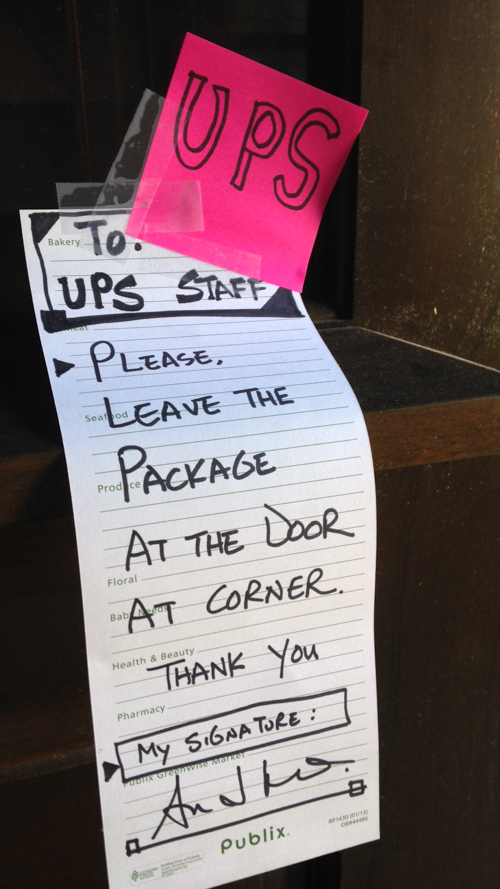 UPS
Bakery
To.
UPS STAFF
PLEASE,
Seafood
LEAVE THE
Produce
PACKAGE
AT THE DOOR
Floral
AT CORNER.
Baby Needs
Health & Beauty
THANK YOU
Pharmacy
MY SIGNATURE:
Publix GreenWise Market
Publix.
RP1430 (01/13)